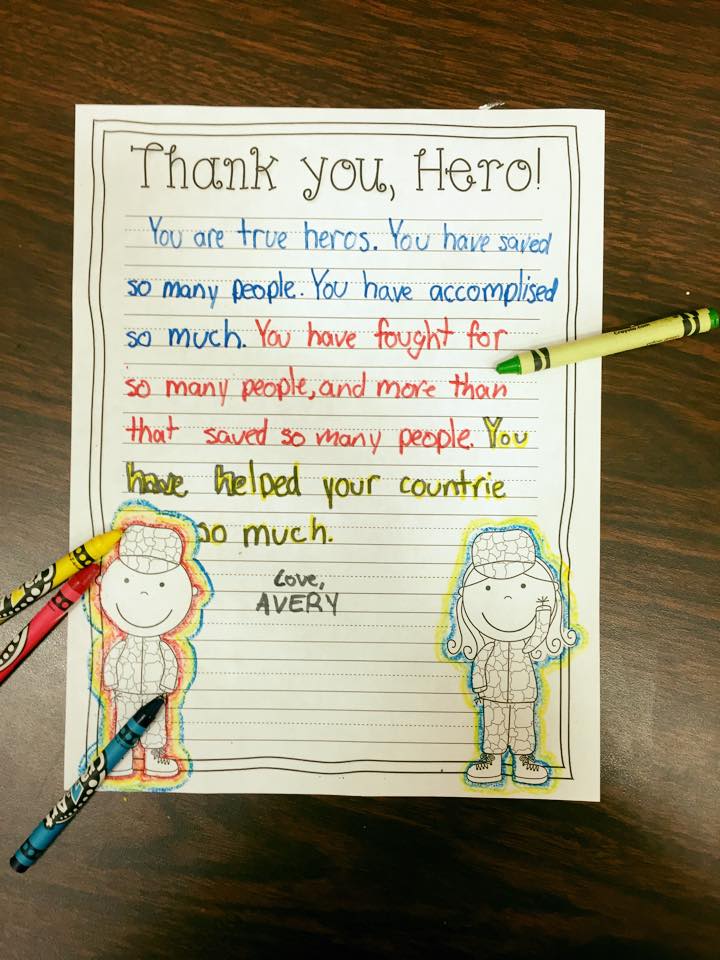 Thank you, Hero!
You are true heros. You have saved
so many people. You have accomplised
so much. You have fought for
so many people, and more than
that saved so many people. You
have helped your countrie
so much.
Love,
AVERY